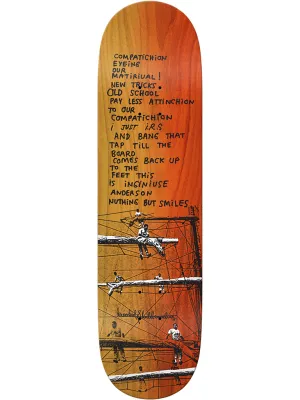 COMPATICHION
EYEING
OUR
MATIRIUAL!
NEW TRICKS.
OLD SCHOOL
PAY LESS ATTINCHION
TO OUR
COMPATICHION
i JUST
AND BANG THAT
TAP TILL THE
BOARD
COMES BACK UP
TO THE
FEET THIS
IS INGINIUSE
ANDERSON
NUTHING BUT SMILES